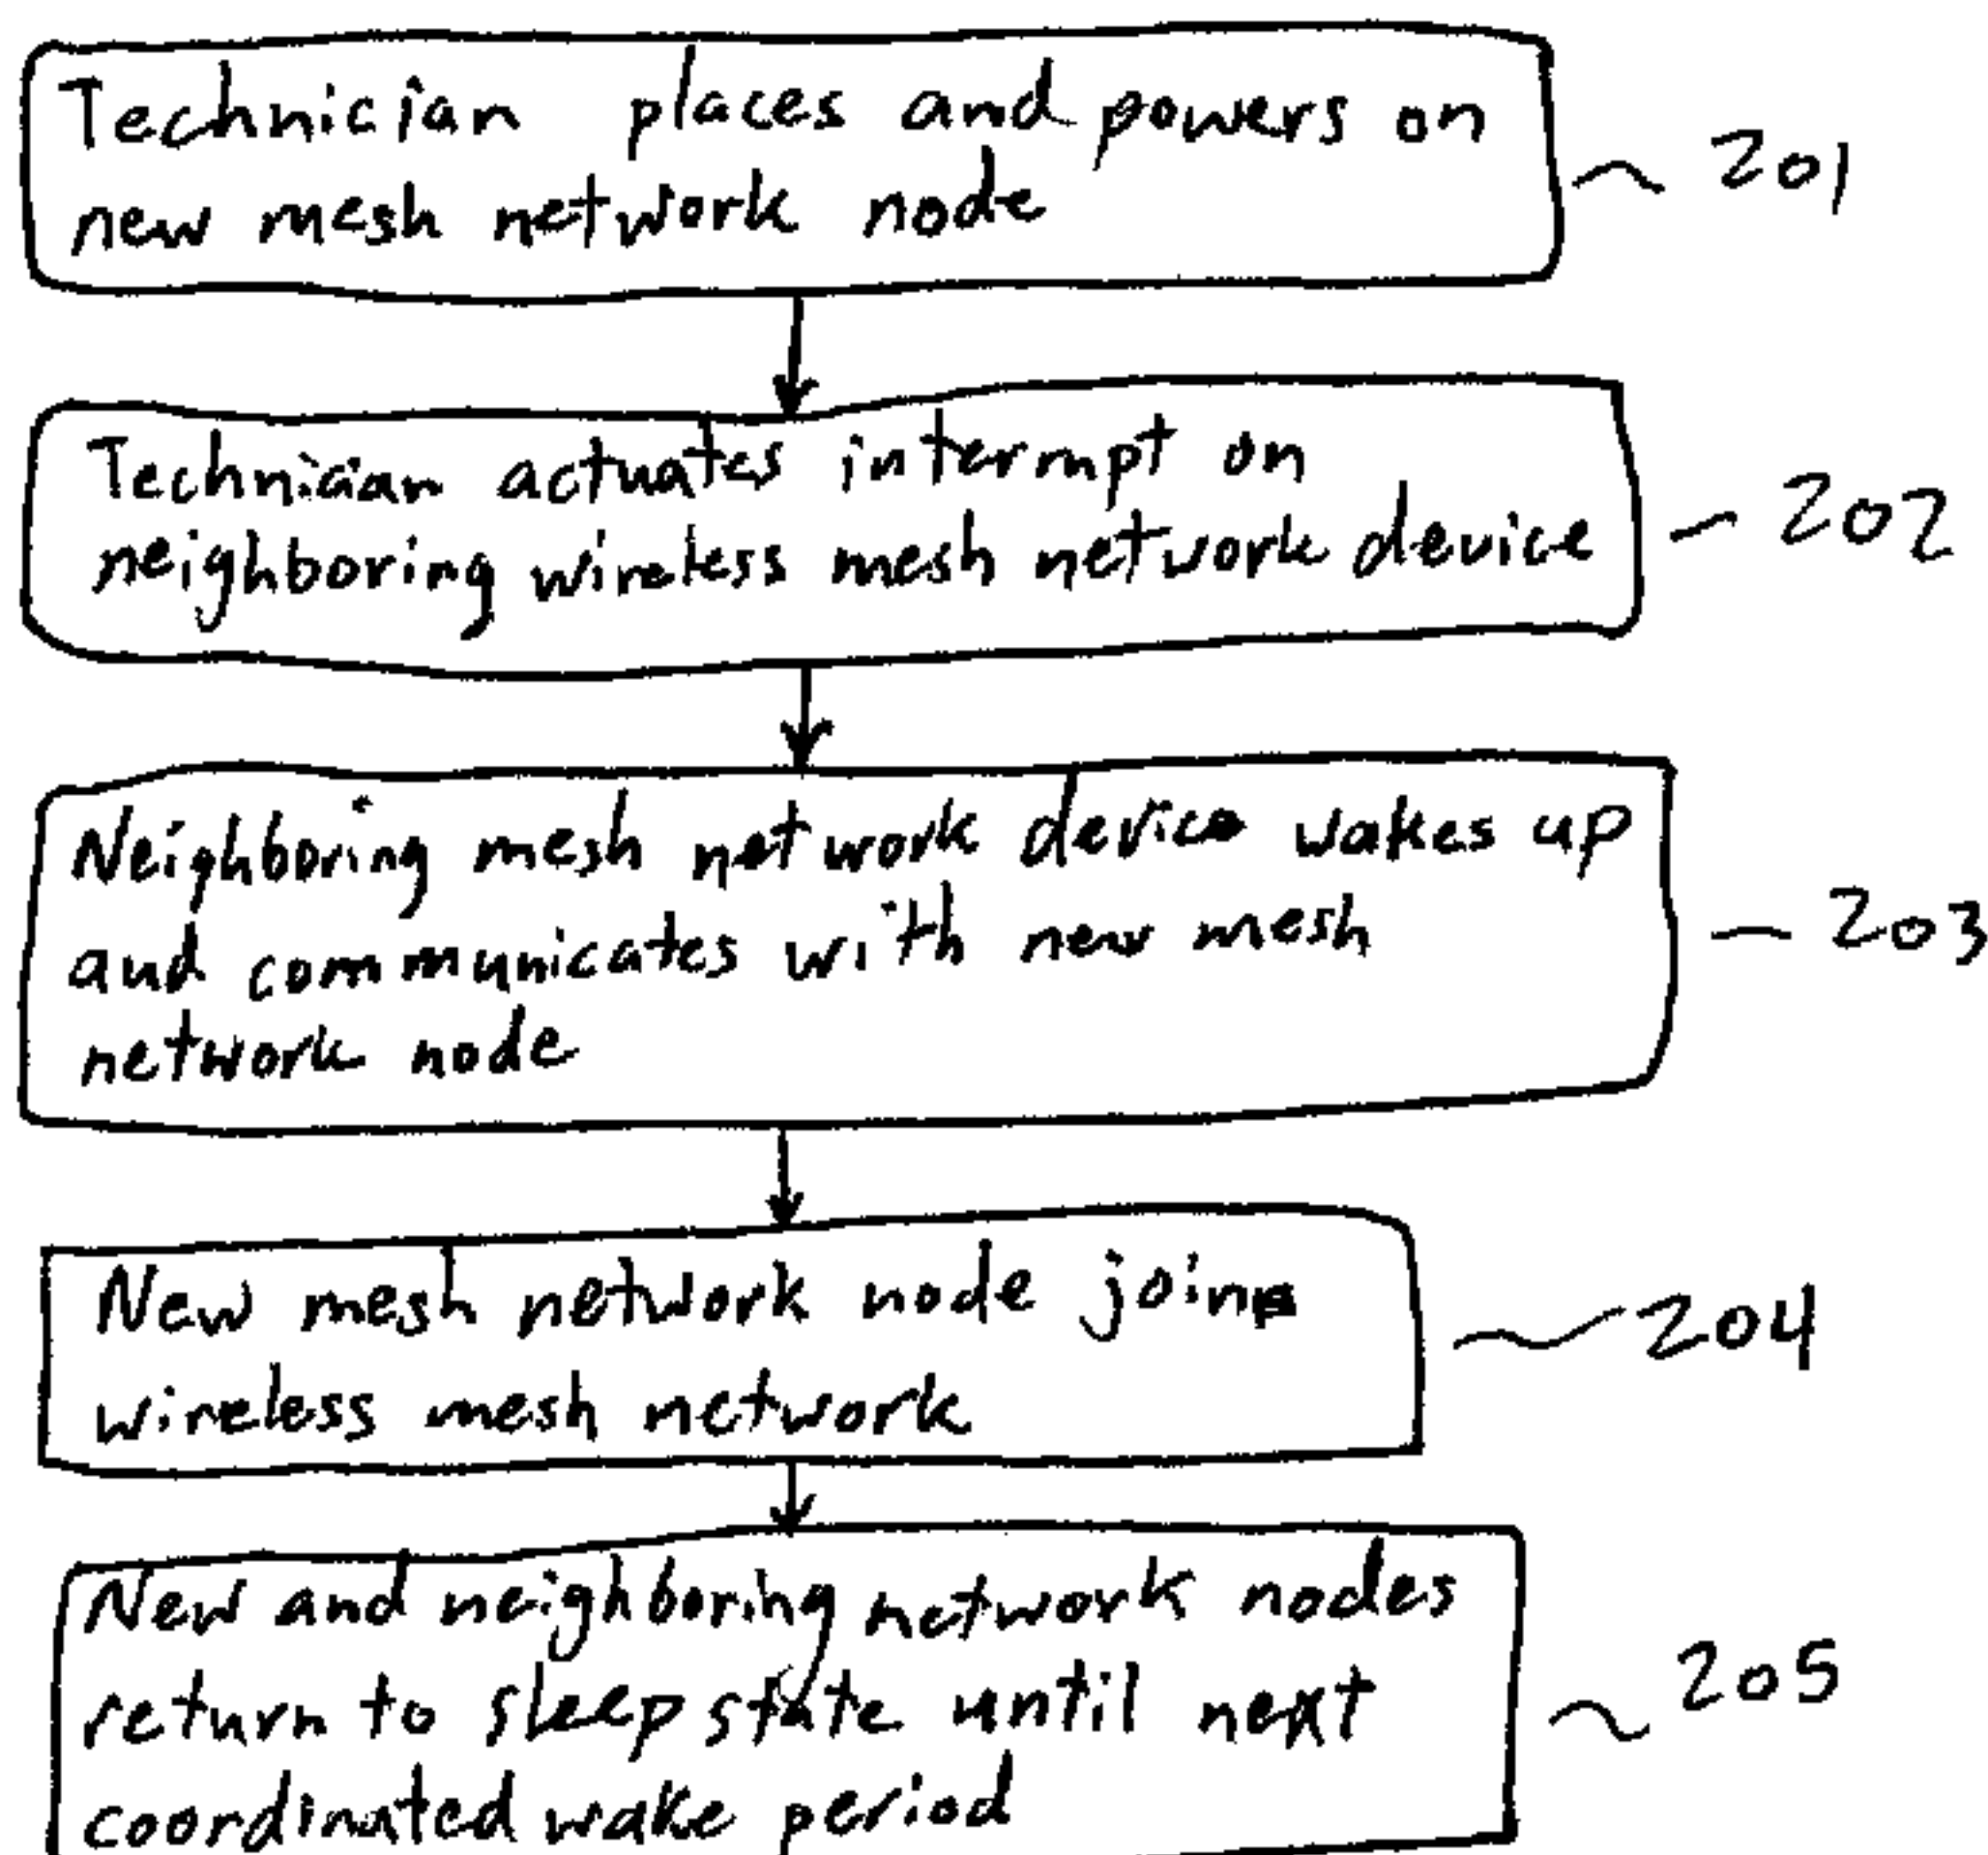 Technician places and powers on
new mesh network node
201
Technician actuates interrupt on
neighboring wireless mesh network device
202
Neighboring mesh network device wakes up
and communicates with new mesh
network node
203
New mesh network node joins
wireless mesh network
204
New and neighboring network nodes
return to sleep state until next
coordinated wake period
205